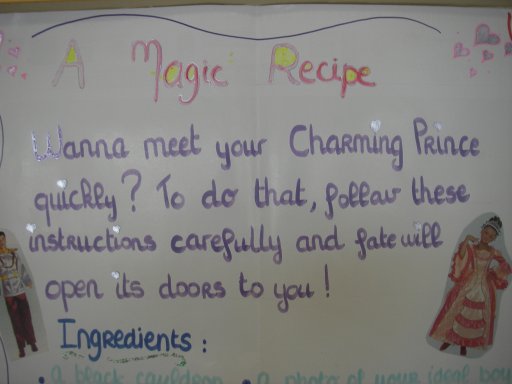 A Magic Recipe
Wanna meet your Charming Prince
quickly? To do that, follow these
instructions carefully and fate will
open its doors to you!
Ingredients:
• a black cauldron • a photo of your ideal boy